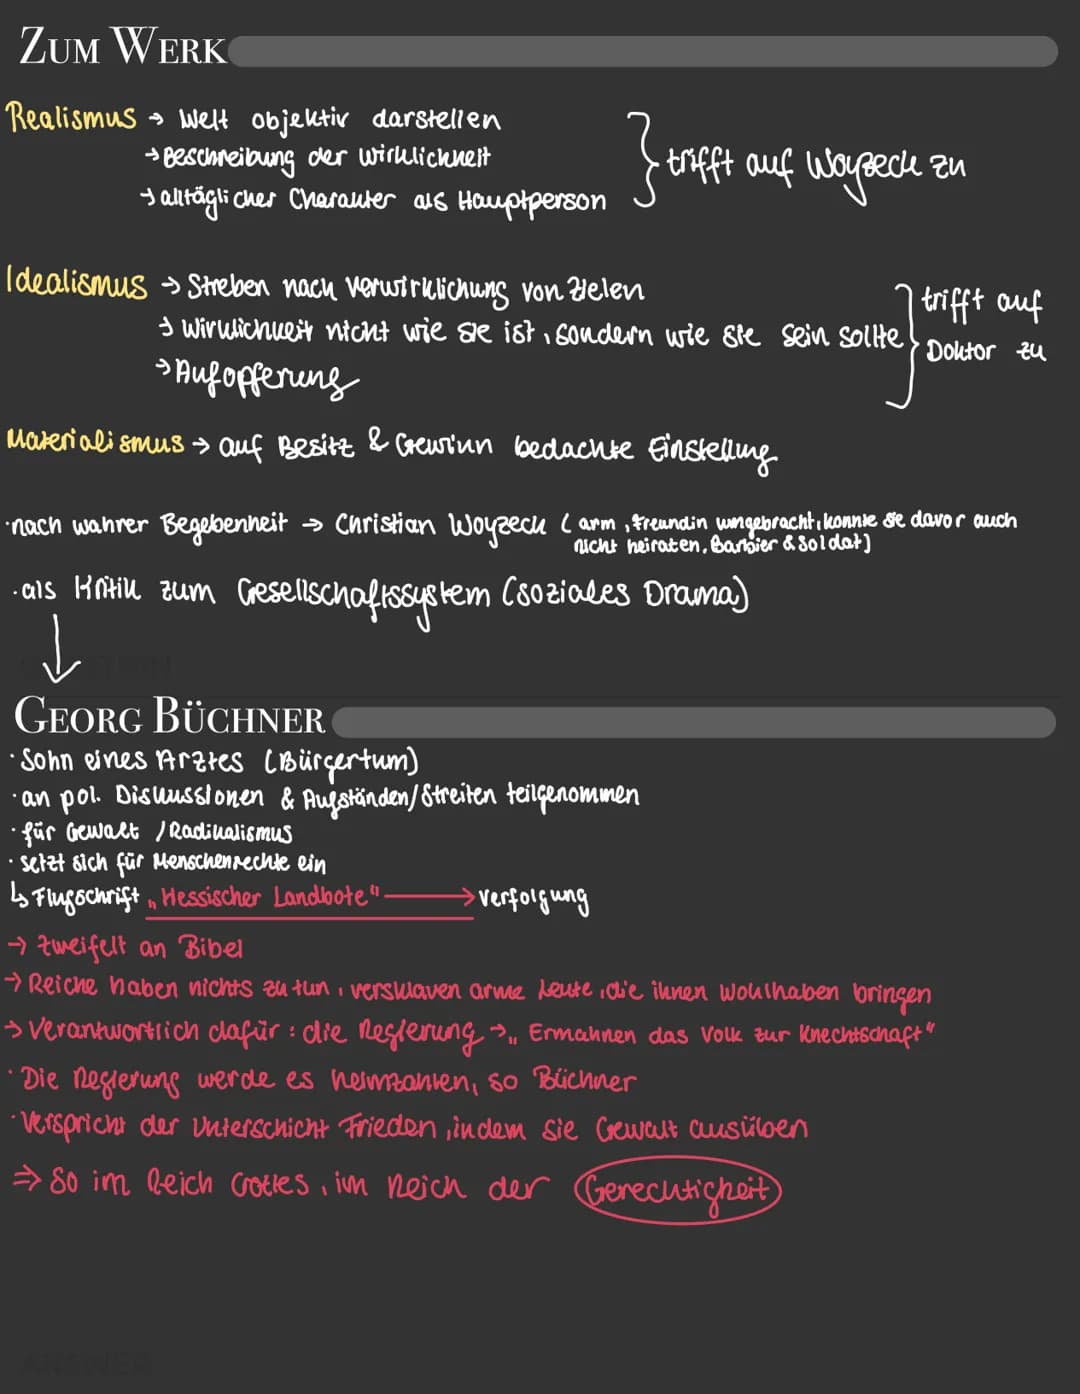 ZUM WERK
Realismus → Welt objektiv darstellen
→ Beschreibung der Wirklichkeit
→ alltäglicher Charakter als Hauptperson
} trifft auf Woyzeck zu
Idealismus → Streben nach Verwirklichung von Zielen
→ Wirklichkeit nicht wie sie ist, sondern wie sie sein sollte
→ Aufopferung
} trifft auf
Doktor zu
Materialismus → auf Besitz & Gewinn bedachte Einstellung
· nach wahrer Begebenheit → Christian Woyzeck (arm, Freundin umgebracht, konnte sie davor auch
nicht heiraten, Barbier & Soldat)
· als Kritik zum Gesellschaftssystem (soziales Drama)
GEORG BÜCHNER
· Sohn eines Arztes (Bürgertum)
· an pol. Diskussionen & Aufständen/Streiten teilgenommen
· für Gewalt / Radikalismus
· setzt sich für Menschenrechte ein
↳ Flugschrift „Hessischer Landbote" → Verfolgung
→ zweifelt an Bibel
→ Reiche haben nichts zu tun, versklaven arme Leute, die ihnen Wohlhaben bringen
→ Verantwortlich dafür: die Regierung → „Ermahnen das Volk zur Knechtschaft"
· Die Regierung werde es heimzahlen, so Büchner
· Verspricht der Unterschicht Frieden, indem sie Gewalt ausüben
⇒ So im Reich Gottes, im Reich der Gerechtigkeit
ANSWER